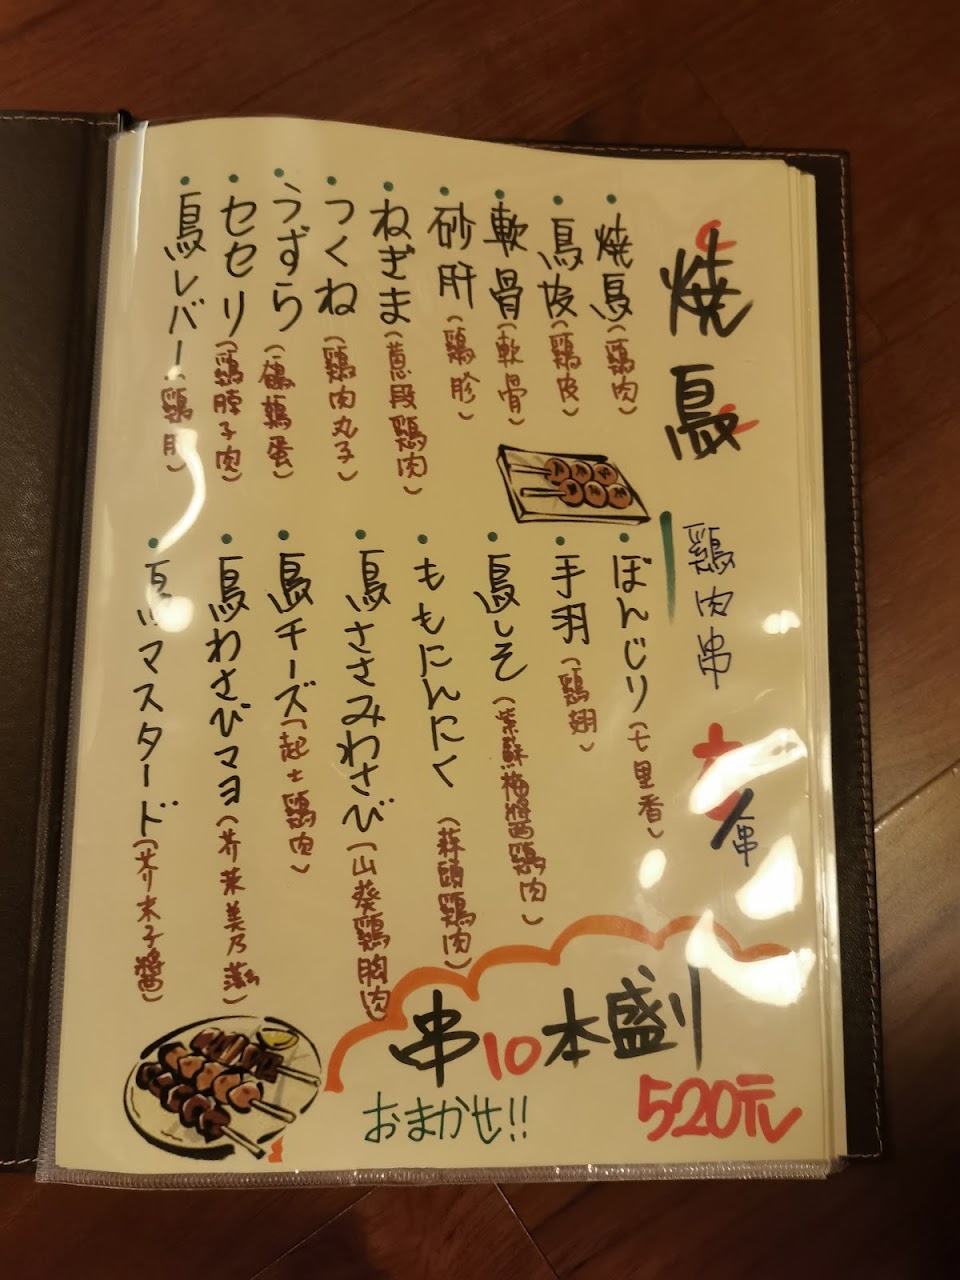 焼鳥
鶏肉串
/串
焼鳥(鶏肉)
鳥皮(鶏皮)
軟骨(軟骨)
砂肝(鶏胗)
ねぎま(蔥段鶏肉)
つくね(鶏肉丸子)
うずら(鵪鶉蛋)
セセリ(鶏脖子肉)
鳥レバー(鶏肝)
ぼんじり(七里香)
手羽(鶏翅)
鳥しそ(紫蘇梅醬鶏肉)
ももにんにく(蒜頭鶏肉)
鳥ささみわさび(山葵鶏胸肉)
鳥チーズ(起士鶏肉)
鳥わさびマヨ(芥茉美乃滋)
鳥マスタード(芥末子醬)
串10本盛り
おまかせ!!
520元